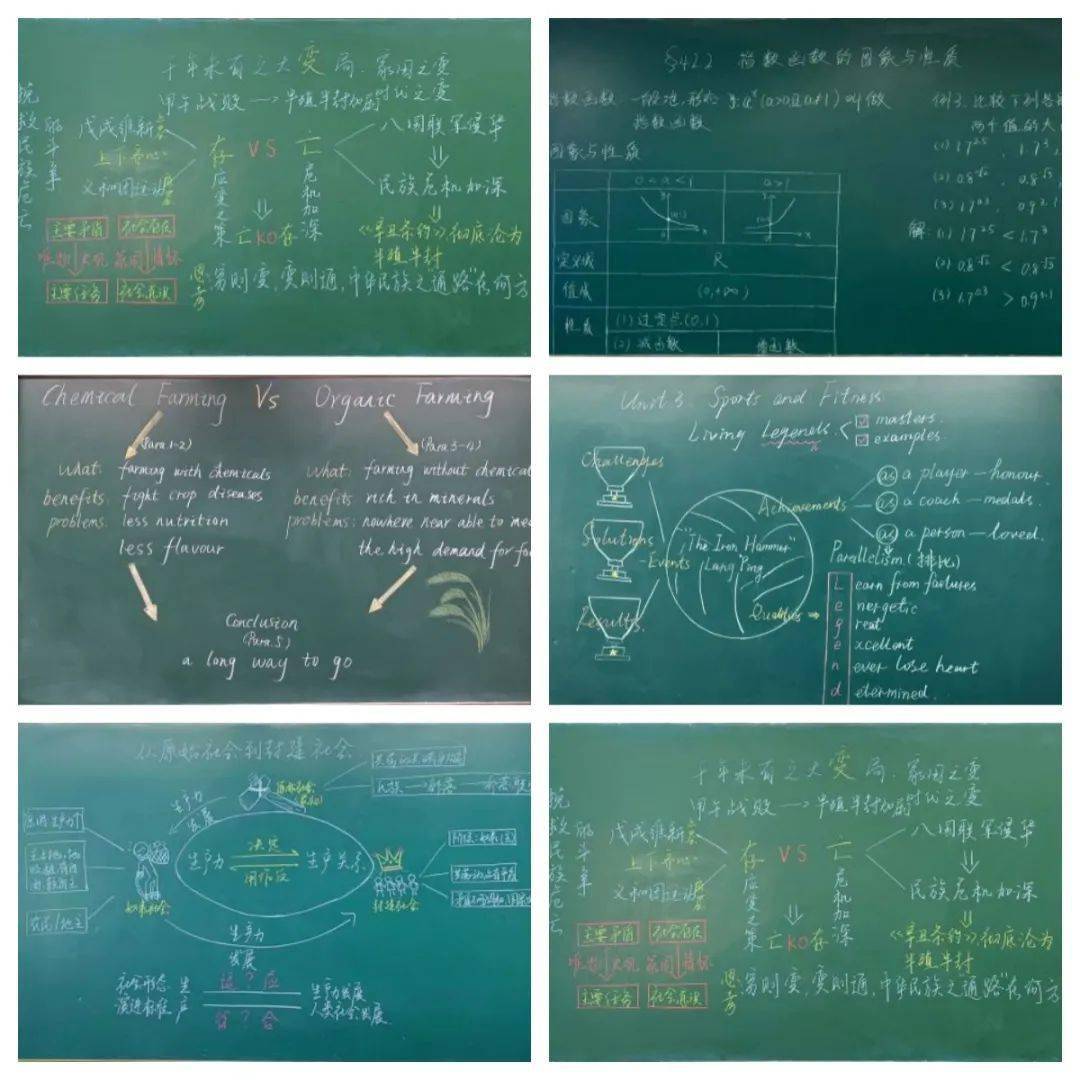 千年未有之大变局.家国之变
时代之变
甲午战败→半殖半封加剧
挽救民族危亡
的斗争
戊戌维新
上下齐心
义和团运动
存 VS 亡
应变之策
危机加深
亡KO存
八国联军侵华
民族危机加深
《辛丑条约》,彻底沦为
半殖半封
主要矛盾 社会存在
唯物史观 家国情怀
主要任务 社会意识
思考
:易则变,变则通,中华民族之通路在何方
§4.2.2 指数函数的图象与性质
指数函数:一般地,形如 y=aˣ(a>0且a≠1)叫做
指数函数
图象与性质
0<a<1 a>1
图象
定义域 R
值域 (0,+∞)
性质 (1)过定点(0,1)
(2)减函数 增函数
例3.比较下列各
两个值的大
(1) 1.7^2.5, 1.7^3
(2) 0.8^-√2, 0.8^-√3
(3) 1.7^0.3, 0.9^3.1
解:(1) 1.7^2.5 < 1.7^3
(2) 0.8^-√2 < 0.8^-√3
(3) 1.7^0.3 > 0.9^3.1
Chemical Farming Vs Organic Farming
(Para.1-2)
what: farming with chemicals
benefits: fight crop diseases
problems: less nutrition
less flavour
(Para.3-4)
what: farming without chemical
benefits: rich in minerals
problems: nowhere near able to mee
the high demand for fo
Conclusion
(Para.5)
a long way to go
Unit 3 Sports and Fitness
Living Legends
masters.
examples.
Challenges
Solutions
Results
-Events
"The Iron Hammer"
Lang Ping
Achievements
as a player—honour.
as a coach—medals.
as a person—loved.
Parallelism(排比)
Qualities
Learn from failures
energetic
great
excellent
never lose heart
determined.
从原始社会到封建社会
生产力
发展
原始社会
民族→部落
生产力 决定 生产关系
反作用
奴隶社会
封建社会
农民/地主
生产力
发展
社会形态
演进标准
生产
适?应
省?合
生产力发展
人类社会发展
千年未有之大变局.家国之变
时代之变
甲午战败→半殖半封加剧
挽救民族危亡
的斗争
戊戌维新
上下齐心
义和团运动
存 VS 亡
应变之策
危机加深
亡KO存
八国联军侵华
民族危机加深
《辛丑条约》,彻底沦为
半殖半封
主要矛盾 社会存在
唯物史观 家国情怀
主要任务 社会意识
思考
:易则变,变则通,中华民族之通路在何方